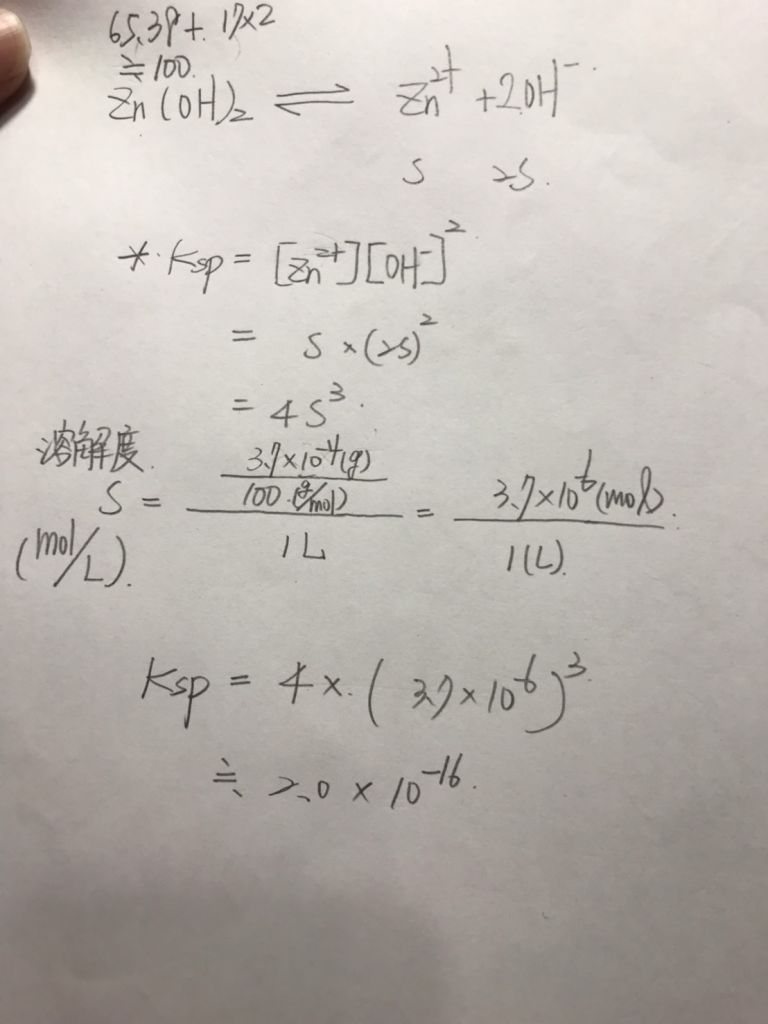 65.39 + 17×2
≒ 100.
Zn(OH)₂ ⇌ Zn²⁺ + 2OH⁻
S 2S.
* Ksp = [Zn²⁺][OH⁻]²
= S × (2S)²
= 4S³
溶解度
S (mol/L) = 3.7×10⁻⁴(g) / 100 (g/mol) / 1L = 3.7×10⁻⁶(mol) / 1(L).
Ksp = 4 × (3.7×10⁻⁶)³
≒ 2.0 × 10⁻¹⁶.